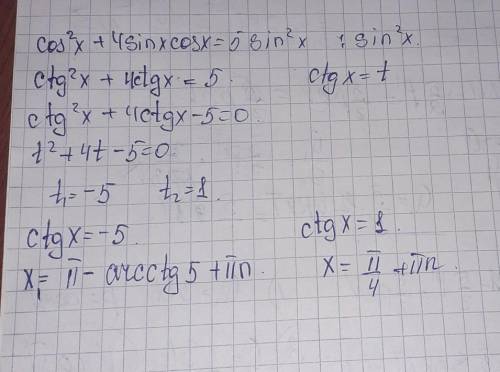 cos²x + 4sinxcosx = 5 sin²x   : sin²x.
ctg²x + 4ctgx = 5.   ctgx = t
ctg²x + 4ctgx - 5 = 0.
t² + 4t - 5 = 0.
t₁ = -5   t₂ = 1.
ctgx = -5.   ctgx = 1.
x₁ = π - arcctg5 + πn.   x = π/4 + πn.